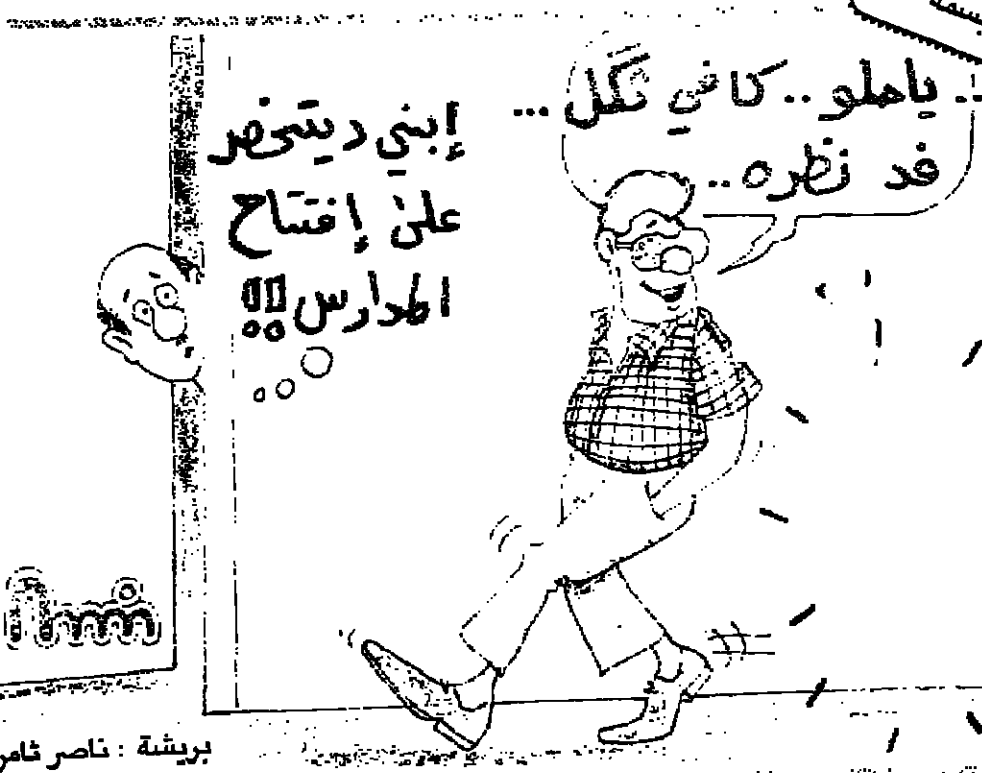 .. ياحلو .. كافي ثگل ...
فد نظره ..
إبني ديتحضر
على إفتتاح
المدارس !!
بريشة : ناصر ثامر